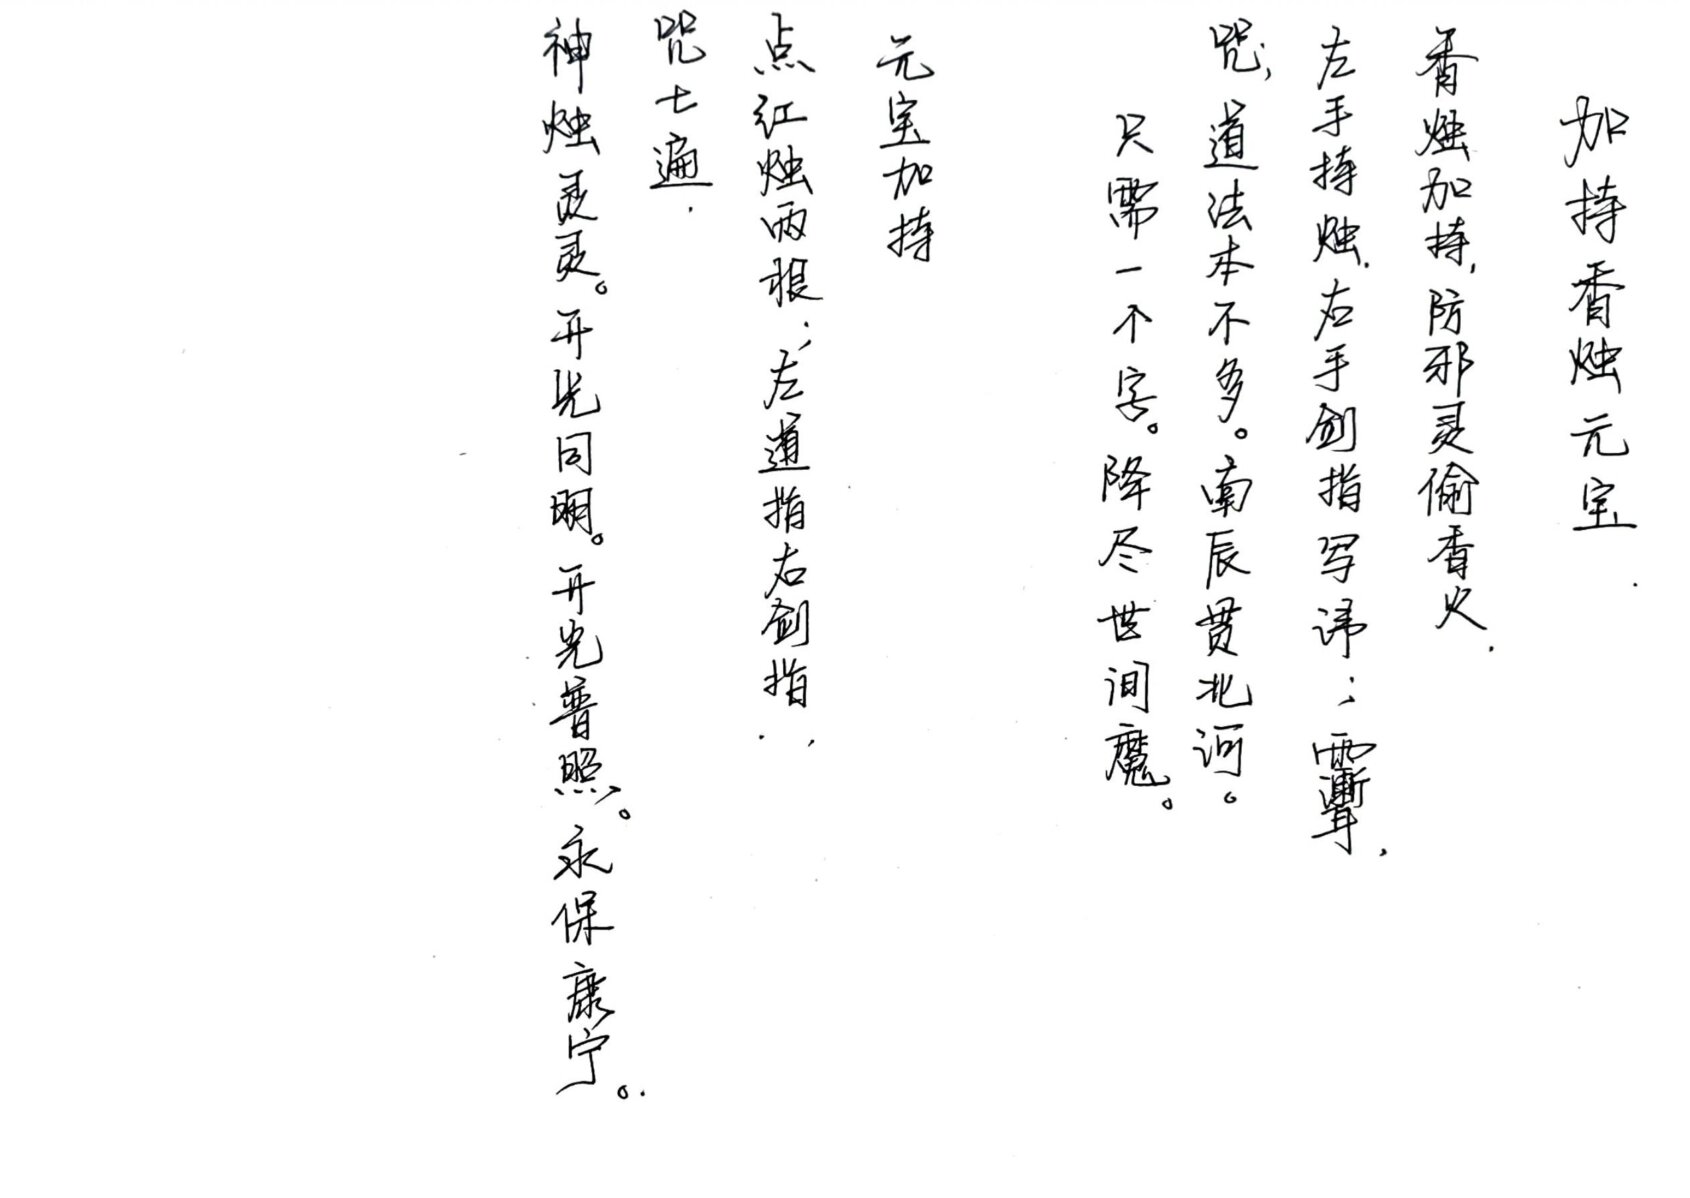 加持香烛元宝
香烛加持，防邪灵偷香火.
左手持烛.右手剑指写讳；
咒；道法本不多。南辰贯北河。
只需一个字。降尽世间魔。
元宝加持
点红烛两根；左道指右剑指.
咒七遍.
神烛灵灵。开光同明。开光普照。永保康宁。